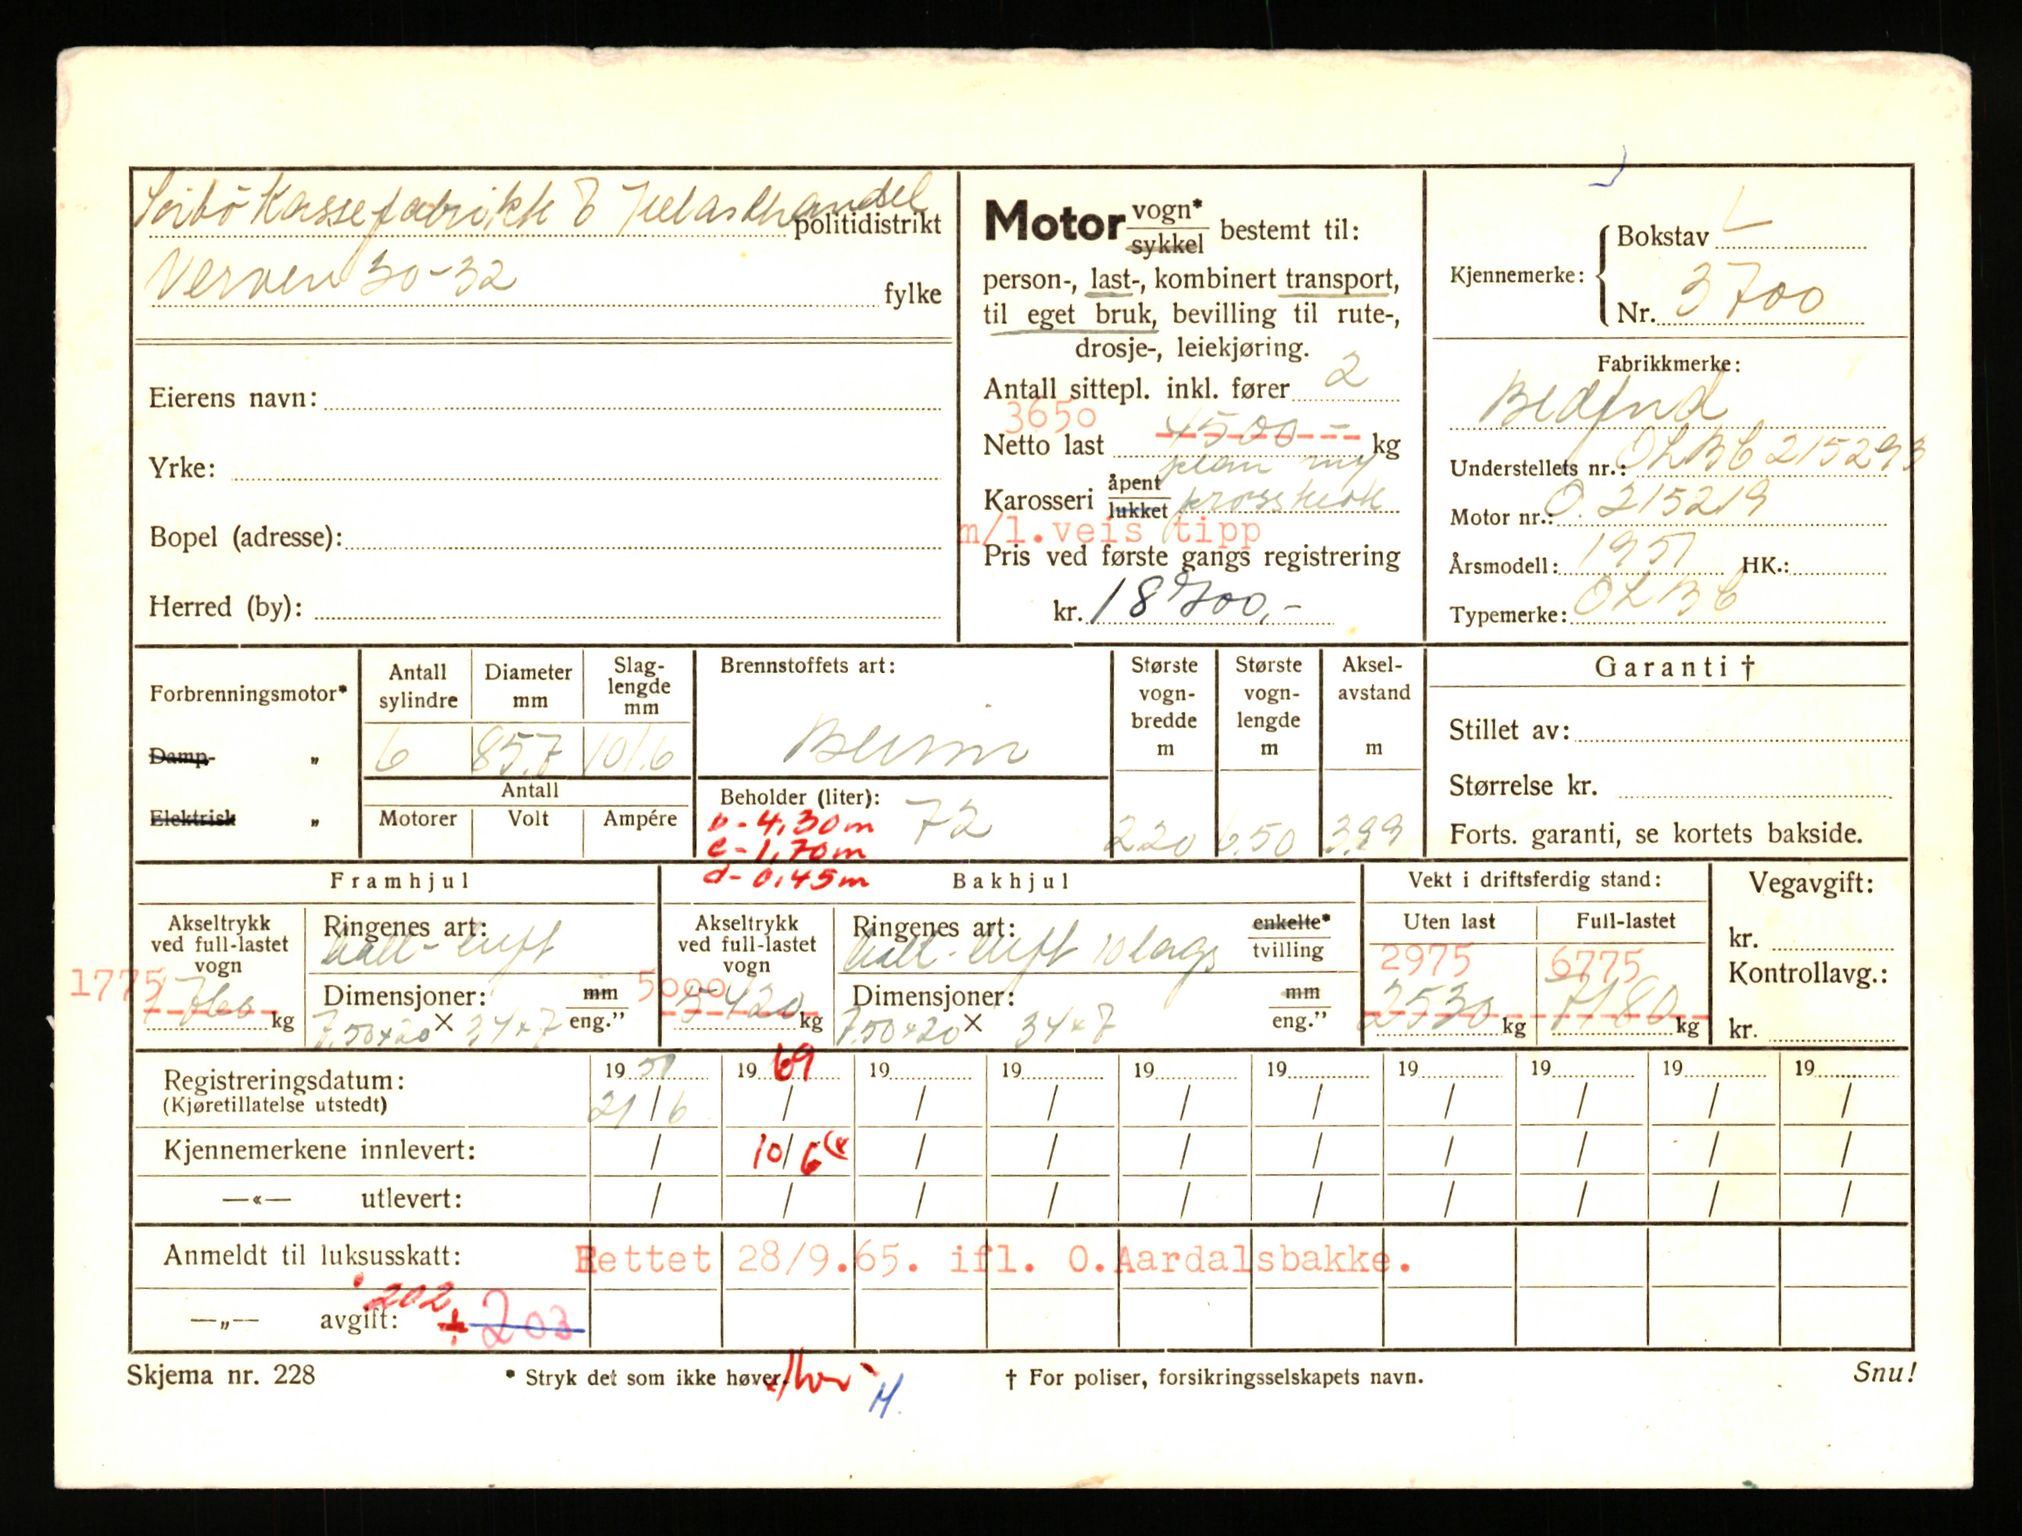 Sörbö Kassefabrikk & Trelasthandel
politidistrikt
Verven 30-32
fylke
Eierens navn:
Yrke:
Bopel (adresse):
Herred (by):
Motor vogn* sykkel bestemt til:
person-, last-, kombinert transport,
til eget bruk, bevilling til rute-,
drosje-, leiekjøring.
Antall sittepl. inkl. fører 2
3650
Netto last 4500 - kg
plan m/
Karosseri åpent lukket
m/l.veis tipp
Pris ved første gangs registrering
kr. 18700,-
Kjennemerke: Bokstav L
Nr. 3700
Fabrikkmerke:
Bedford
Understellets nr.: OLBC 215293
Motor nr.: O. 215219
Årsmodell: 1951 HK.:
Typemerke: OLBC
Forbrenningsmotor*
Damp- „
Elektrisk „
Antall sylindre
Diameter mm
Slag-lengde mm
6 85,7 101,6
Antall
Motorer Volt Ampére
Brennstoffets art:
Bensin
Beholder (liter): 72
b - 4,30 m
c - 1,70 m
d - 0,45 m
Største vogn-bredde m
Største vogn-lengde m
Aksel-avstand m
2.20 6.50 3.99
Garanti †
Stillet av:
Størrelse kr.
Forts. garanti, se kortets bakside.
Framhjul
Akseltrykk ved full-lastet vogn
1775
1760 kg
Ringenes art:
hall-luft
Dimensjoner: mm eng."
7,50x20 X 34x7
Bakhjul
Akseltrykk ved full-lastet vogn
5000
5420 kg
Ringenes art: enkelte* tvilling
hall-luft 10 lags
Dimensjoner: mm eng."
7,50x20 X 34x7
Vekt i driftsferdig stand:
Uten last Full-lastet
2975 6775
2530 kg 7180 kg
Vegavgift:
kr.
Kontrollavg.:
kr.
Registreringsdatum: 19 51 19 69 19 19 19 19 19 19 19 19
(Kjøretillatelse utstedt) 21/6 / / / / / / / / /
Kjennemerkene innlevert: / 10/6 / / / / / / / /
—«— utlevert: / / / / / / / / / /
Anmeldt til luksusskatt: Rettet 28/9.65. ifl. O.Aardalsbakke.
—„— avgift: 202 + 203
Skjema nr. 228 * Stryk det som ikke høver. † For poliser, forsikringsselskapets navn. Snu!
H.